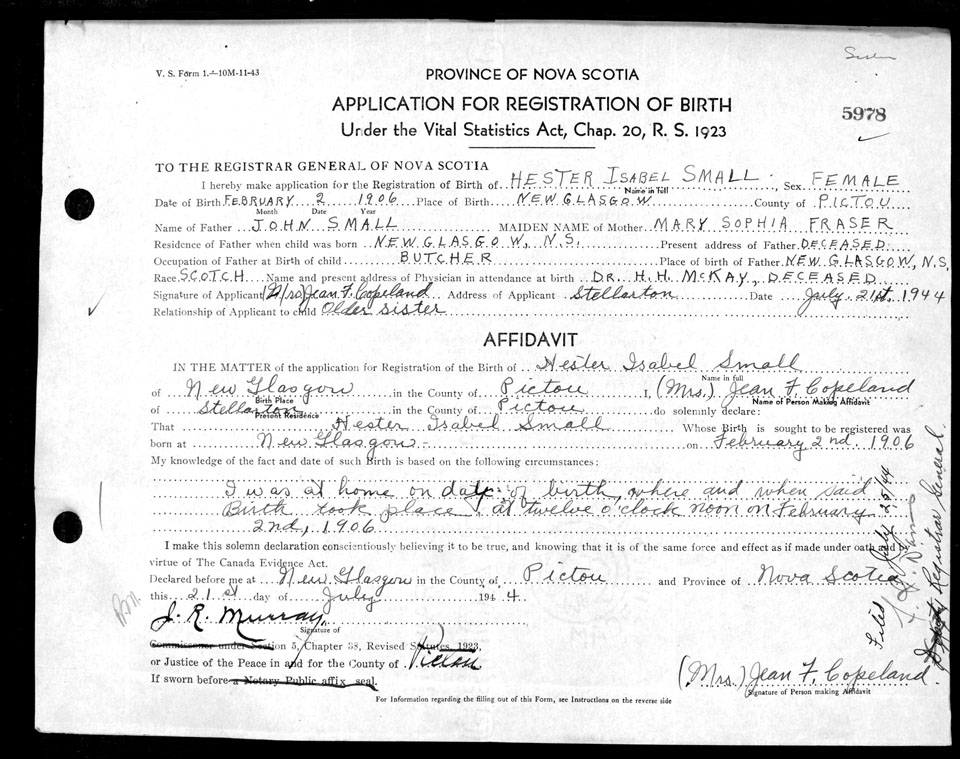 V. S. Form 1.—10M-11-43
PROVINCE OF NOVA SCOTIA
APPLICATION FOR REGISTRATION OF BIRTH
5978
Under the Vital Statistics Act, Chap. 20, R. S. 1923
TO THE REGISTRAR GENERAL OF NOVA SCOTIA
I hereby make application for the Registration of Birth of HESTER ISABEL SMALL. Sex FEMALE
Name in full
Date of Birth FEBRUARY 2 1906 Place of Birth NEW GLASGOW County of PICTOU
Month Date Year
Name of Father JOHN SMALL MAIDEN NAME of Mother MARY SOPHIA FRASER
Residence of Father when child was born NEW GLASGOW, N.S. Present address of Father DECEASED
Occupation of Father at Birth of child BUTCHER Place of birth of Father NEW GLASGOW, N.S.
Race SCOTCH Name and present address of Physician in attendance at birth DR. H.H. McKAY, DECEASED
Signature of Applicant (Mrs) Jean F. Copeland Address of Applicant Stellarton Date July 21st. 1944
Relationship of Applicant to child Older sister
AFFIDAVIT
IN THE MATTER of the application for Registration of the Birth of Hester Isabel Small
Name in full
of New Glasgow in the County of Pictou I, (Mrs.) Jean F. Copeland
Birth Place Name of Person Making Affidavit
of Stellarton in the County of Pictou do solemnly declare:
Present Residence
That Hester Isabel Small Whose Birth is sought to be registered was
born at New Glasgow - on February 2nd. 1906
My knowledge of the fact and date of such Birth is based on the following circumstances:
I was at home on date of birth, where and when said
Birth took place, at twelve o'clock noon on February
2nd, 1906
I make this solemn declaration conscientiously believing it to be true, and knowing that it is of the same force and effect as if made under oath and by
virtue of The Canada Evidence Act.
Declared before me at New Glasgow in the County of Pictou and Province of Nova Scotia
this 21st day of July 1944
J. R. Murray
Signature of
Commissoner under Section 5, Chapter 38, Revised Statutes, 1923,
or Justice of the Peace in and for the County of Pictou
If sworn before a Notary Public affix seal.
(Mrs.) Jean F. Copeland
Signature of Person making Affidavit
For Information regarding the filling out of this Form, see Instructions on the reverse side
Filed July 25/44
Deputy Registrar General.